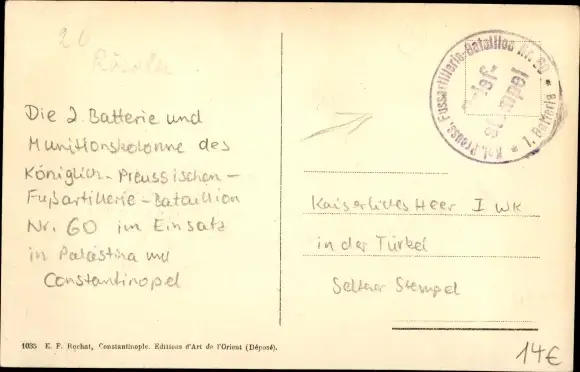 20
Die 2. Batterie und
Munitionskolonne des
Königlich-Preussischen-
Fußartillerie-Bataillion
Nr. 60 im Einsatz
in Palästina und
Constantinopel
Kgl. Preuss. Fussartillerie-Bataillon Nr. 60 * 1. Batterie *
Brief-
stempel
Kaiserliches Heer I WK
in der Türkei
Seltener Stempel
1035 E. F. Rochat, Constantinople. Editions d'Art de l'Orient (Déposé).
14€